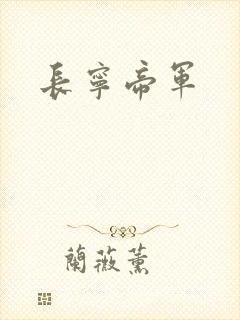 長寧帝軍
蘭薇薰